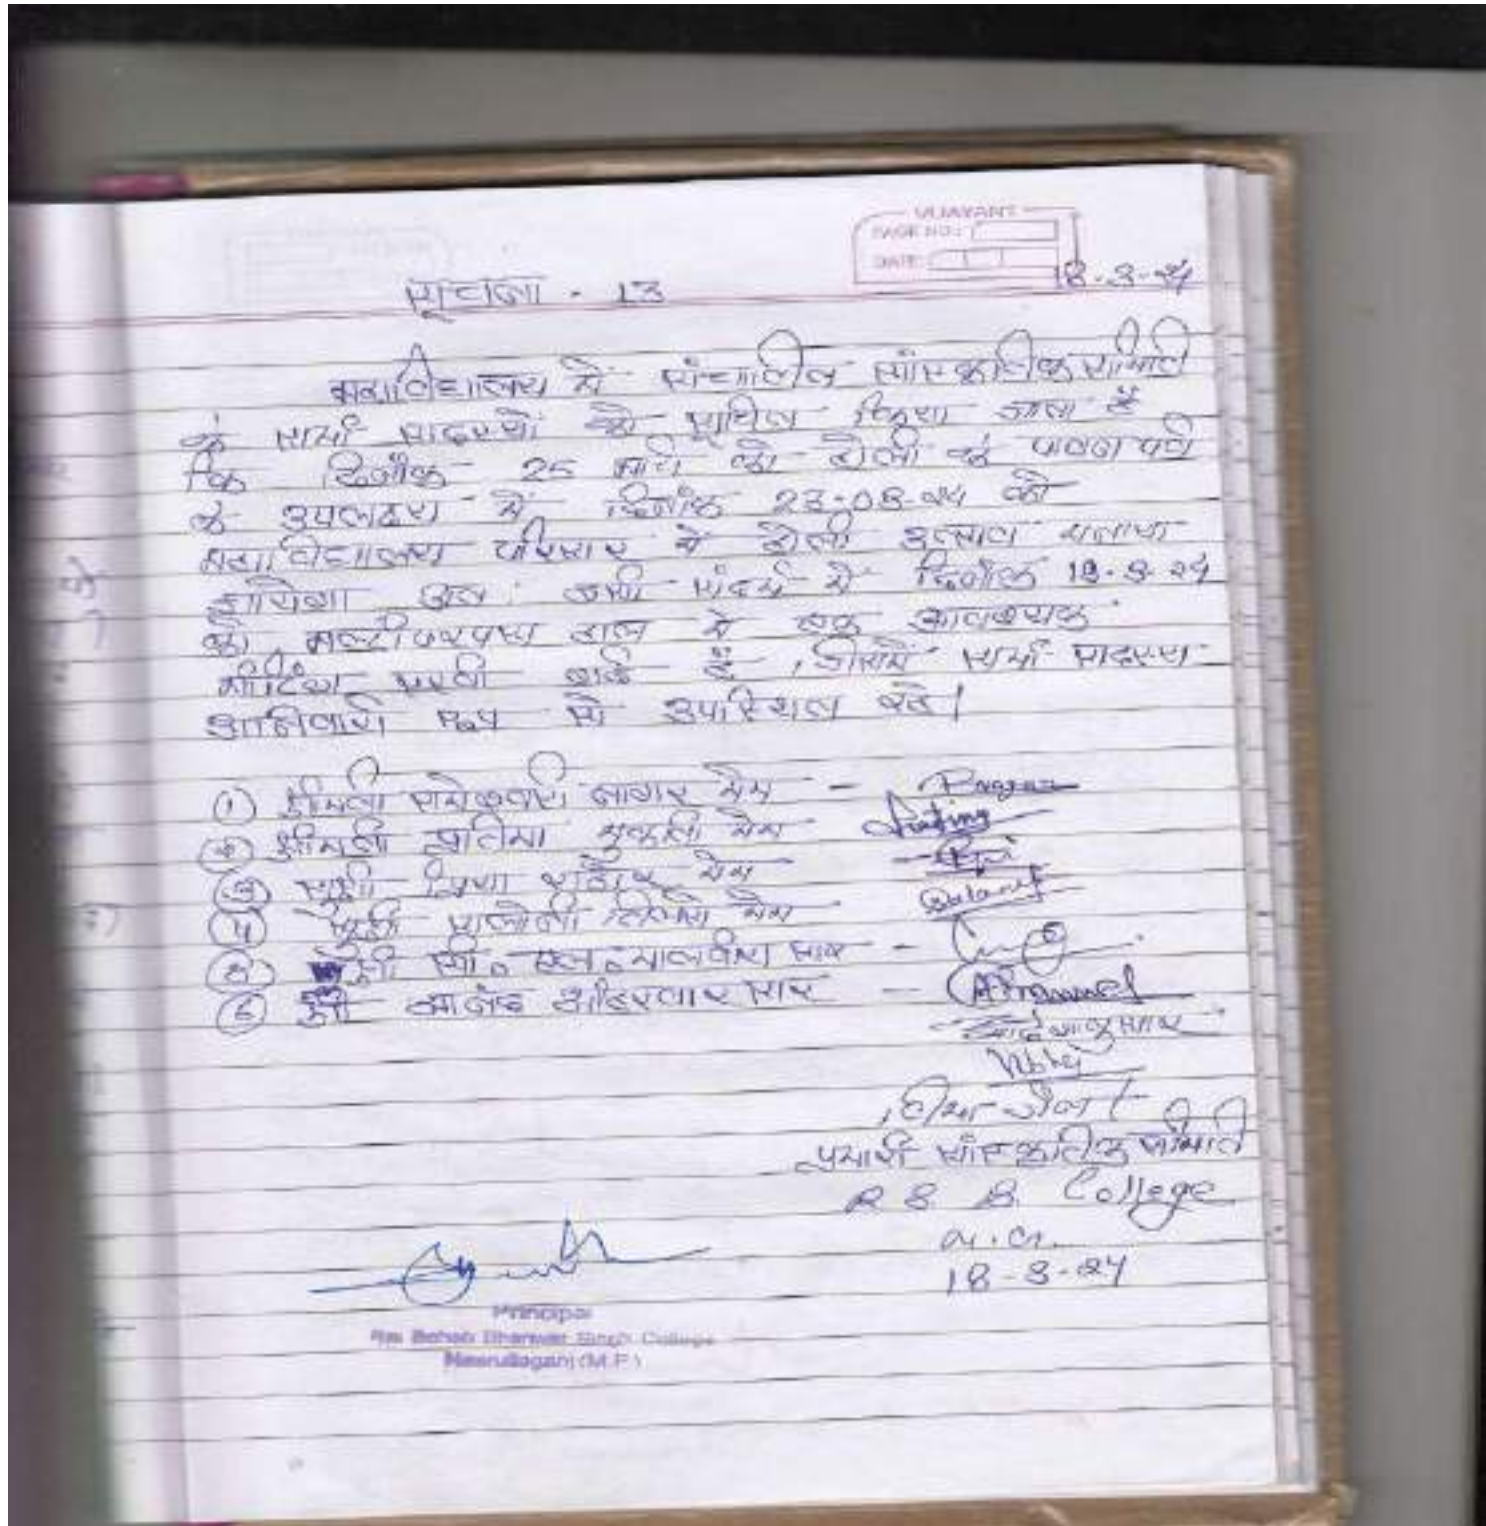 VIJAYANT
PAGE NO.:
DATE:
सूचना - 13
18-3-24
महाविद्यालय में संचालित सांस्कृतिक समिति
के सभी सदस्यों को सूचित किया जाता है
कि दिनाँक 25 मार्च को होली के पावन पर्व
के उपलक्ष्य में दिनाँक 23-03-24 को
महाविद्यालय परिसर में होली उत्सव मनाया
जायेगा अतः इसी संदर्भ में दिनाँक 18-3-24
को मल्टीपरपस हाल में एक आवश्यक
मीटिंग रखी गई है, जिसमें सभी सदस्य
अनिवार्य रूप से उपस्थित रहे।
① श्रीमती नागर मैम -
② श्रीमती प्रतिमा मैम
③ सुश्री प्रिया राठौर मैम
④ सुश्री मैम
⑤ श्री सी. एल. मालवीय सर -
⑥ श्री अहिरवार सर -
प्रभारी सांस्कृतिक समिति
R S B. College
18-3-24
Principal
Rai Sahab Bhanwar Singh College
Nasrullaganj (M.P.)